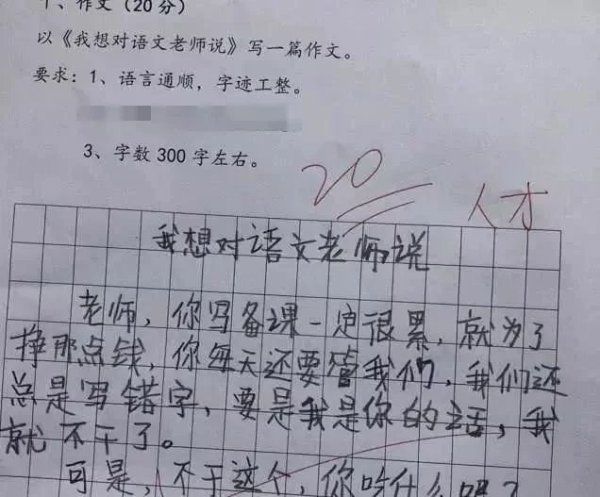 十、作文(20分)
以《我想对语文老师说》写一篇作文。
要求:1、语言通顺,字迹工整。
3、字数 300 字左右。
20
人才
我想对语文老师说
老师,你写备课一定很累,就为了
挣那点钱,你每天还要管我们,我们还
总是写错字,要是我是你的话,我
就不干了。
可是,不干这个,你吃什么喝?